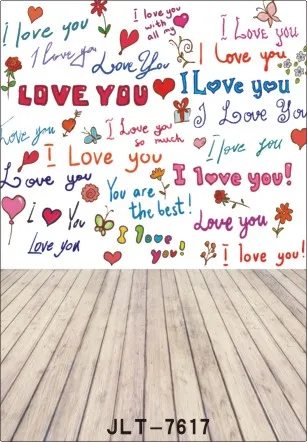 I love you
I love you
with
all my
I Love you
I love you
Love You
I Love you
LOVE YOU
I Love you
I Love You
Love you
I Love you
so much
I love you
I Love you
Love you
You are
the best!
I love you!
I You
Love you
Love you
I love
you!
I love you!
JLT-7617